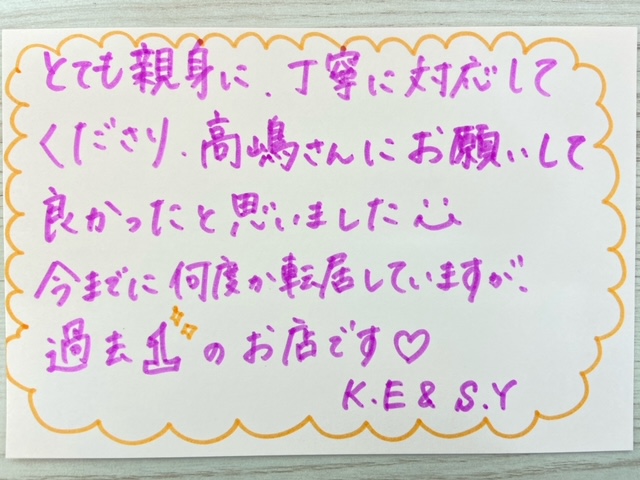 とても親身に、丁寧に対応して
くださり、高嶋さんにお願いして
良かったと思いました
今までに何度か転居していますが、
過去1のお店です♡
K.E & S.Y